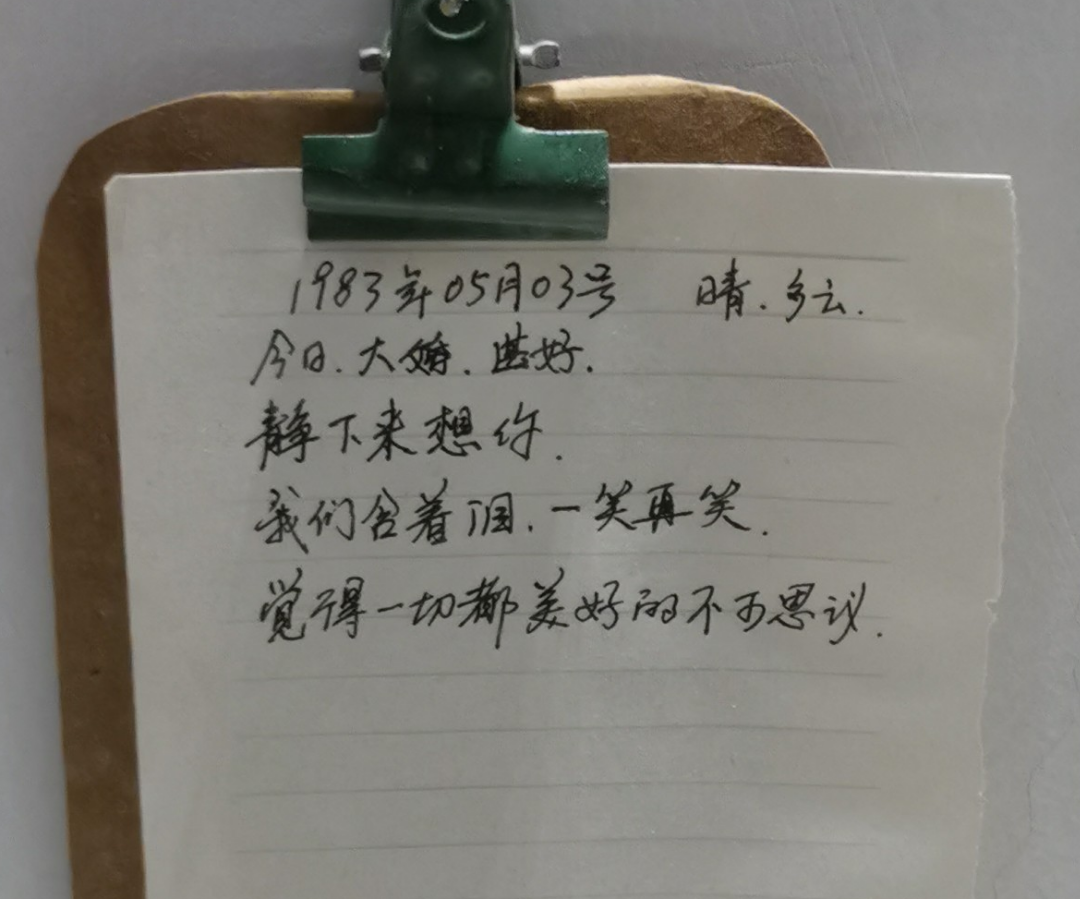 1983年05月03号 晴.多云.
今日.大婚.甚好.
静下来想你.
我们含着泪.一笑再笑.
觉得一切都美好的不可思议.